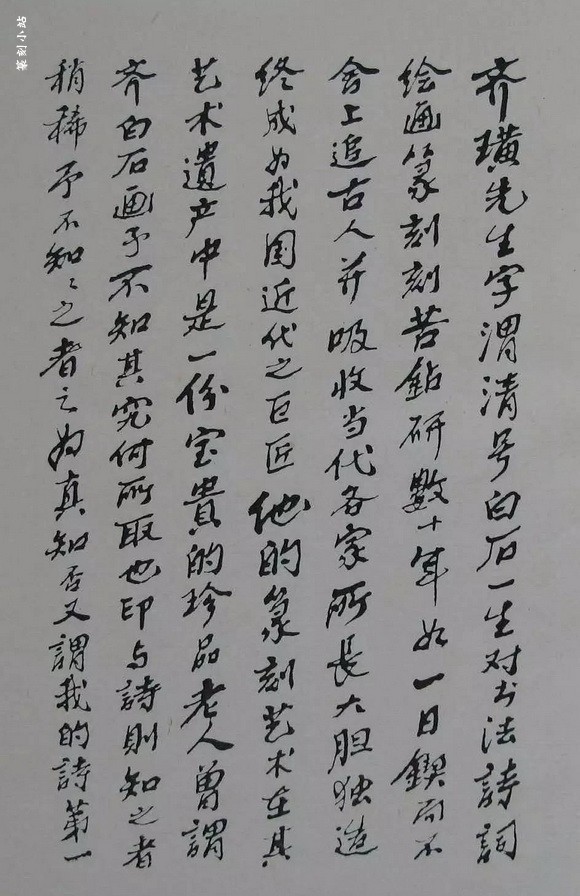 齐璜先生字渭清号白石一生对书法詩詞
绘画篆刻刻苦鈷研數十年如一日鍥而不
舍上追古人并吸收当代各家所長大胆独造
终成为我国近代之巨匠他的篆刻艺术在其
艺术遺产中是一份宝貴的珍品老人曾謂
齐白石画予不知其究何所取也印与詩則知之者
稍稀予不知〻之者之为真知否又謂我的詩第一
篆刻小站